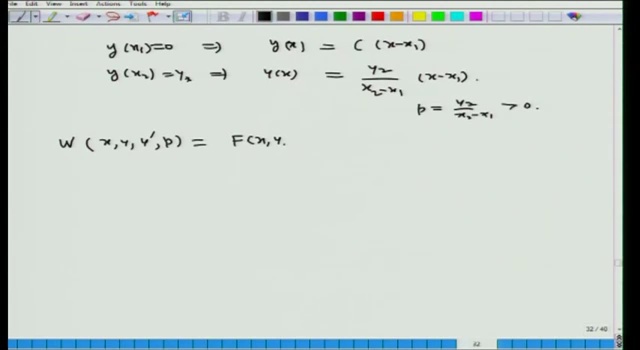 View Insert Actions Tools Help
y(x₁)=0 ⇒ y(x) = C (x-x₁)
y(x₂)=y₂ ⇒ y(x) = y₂/(x₂-x₁) (x-x₁).
p = y₂/(x₂-x₁) > 0.
W (x,y,y',p) = F(x,y.
32 / 40
32